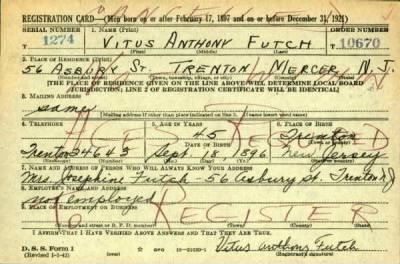 REGISTRATION CARD—(Men born on or after February 17, 1897 and on or before December 31, 1921)
SERIAL NUMBER 1. NAME (Print) ORDER NUMBER
T 1274 VITUS ANTHONY FUTCH 10670
(First) (Middle) (Last)
2. PLACE OF RESIDENCE (Print)
56 ASBURY ST. TRENTON MERCER N. J.
(Number and street) (Town, township, village, or city) (County) (State)
[THE PLACE OF RESIDENCE GIVEN ON THE LINE ABOVE WILL DETERMINE LOCAL BOARD
JURISDICTION; LINE 2 OF REGISTRATION CERTIFICATE WILL BE IDENTICAL]
3. MAILING ADDRESS
same
[Mailing address if other than place indicated on line 2. If same insert word same]
4. TELEPHONE 5. AGE IN YEARS 6. PLACE OF BIRTH
45 Trenton
DATE OF BIRTH
Trenton 24643 Sept. 1896 New Jersey
7. NAME AND ADDRESS OF PERSON WHO WILL ALWAYS KNOW YOUR ADDRESS
Mrs. Josephine Futch - 56 Asbury St. Trenton N J
8. EMPLOYER'S NAME AND ADDRESS
not employed
9. PLACE OF EMPLOYMENT OR BUSINESS
REGISTER
I AFFIRM THAT I HAVE VERIFIED ABOVE ANSWERS AND THAT THEY ARE TRUE.
D. S. S. Form 1
(Revised 1-1-42) Vitus Anthony Futch
(Registrant's signature)